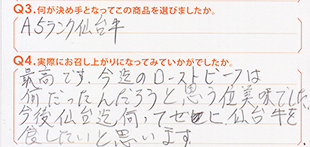 Q3.何が決め手となってこの商品を選びましたか。
A5ランク仙台牛
Q4.実際にお召し上がりになってみていかがでしたか。
最高です。今迄のローストビーフは
何だったんだろうと思う位美味でした。
今後仙台迄伺ってぜヒ、仙台牛を
食したいと思います。